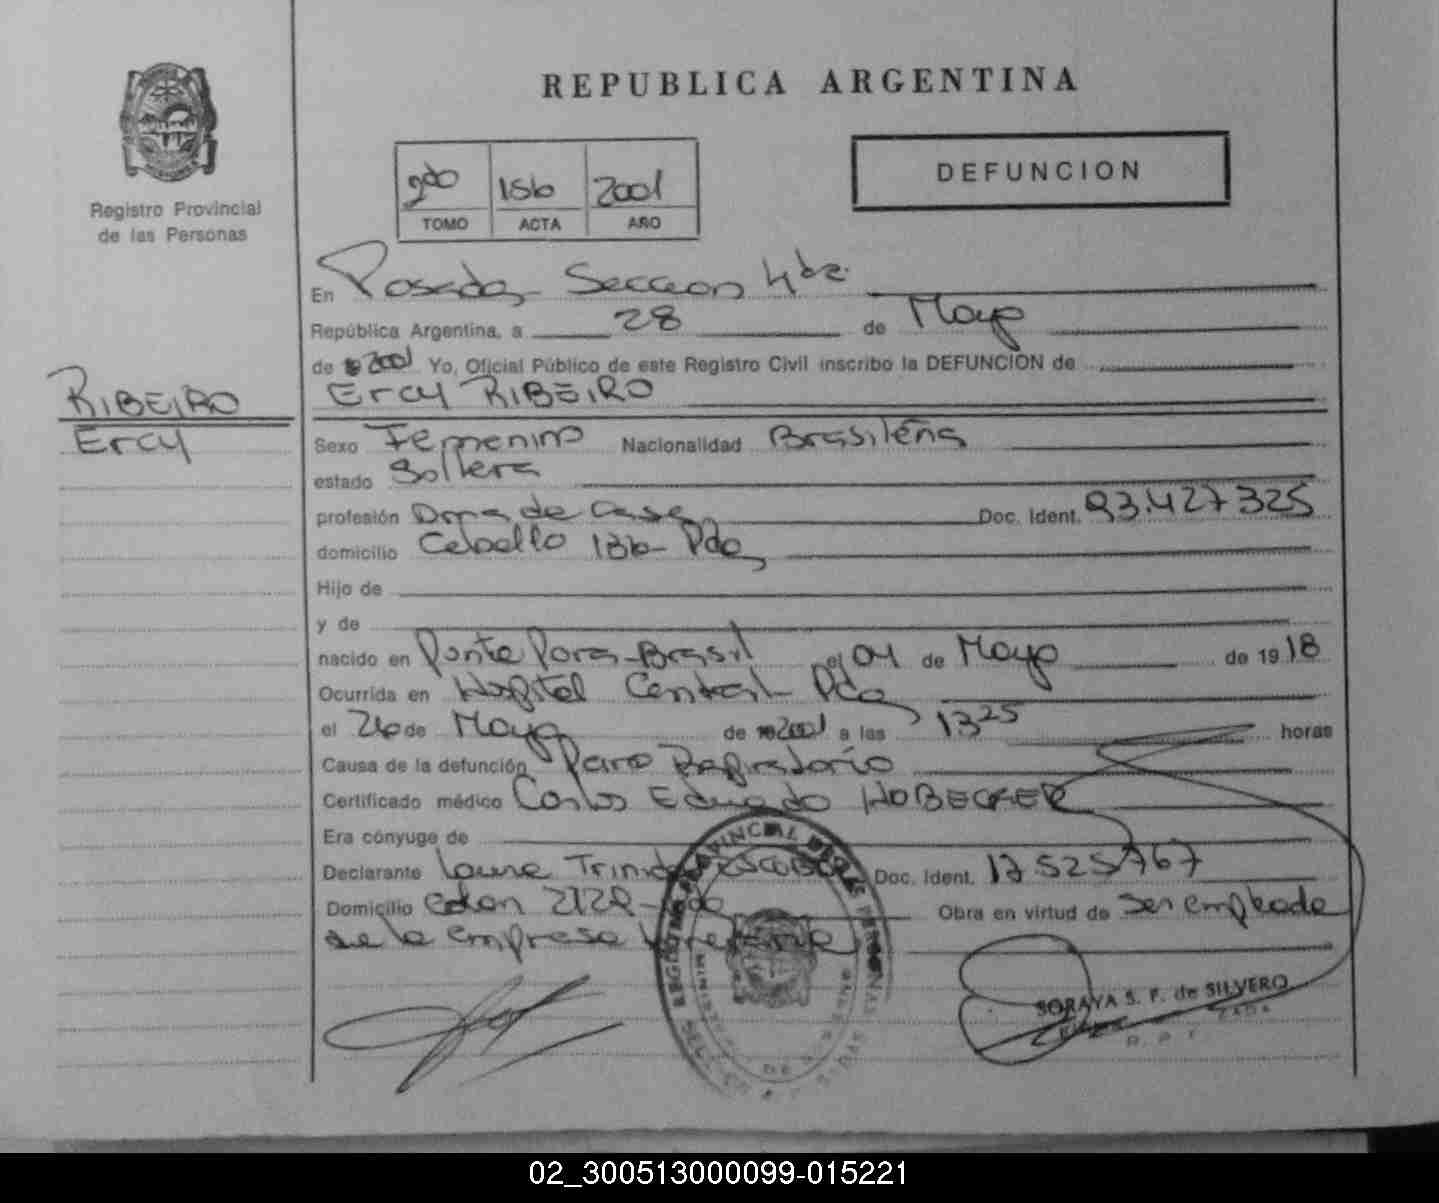 REPUBLICA ARGENTINA
Registro Provincial
de las Personas
2do 156 2001
TOMO ACTA AÑO
DEFUNCION
En Posadas Seccion 4ta
República Argentina, a 28 de Mayo
de 2001 Yo, Oficial Público de este Registro Civil inscribo la DEFUNCION de
RIBEIRO
Ercy
Ercy RIBEIRO
Sexo Femenino Nacionalidad Brasileña
estado Soltera
profesión Ama de Casa Doc. Ident. 93.427325
domicilio 186- Pdas
Hijo de
y de
nacido en Ponta Pora-Brasil el 04 de Mayo de 1918
Ocurrida en Hospital Central- Pdas
el 26 de Mayo de 2001 a las 13 25 horas
Causa de la defunción Paro Respiratorio
Certificado médico Carlos Eduardo HOBECKER
Era cónyuge de
Declarante Laura Doc. Ident. 17.525767
Domicilio Colon Obra en virtud de ser empleada
de la empresa
SORAYA S. F. de SILVERO
02_300513000099-015221